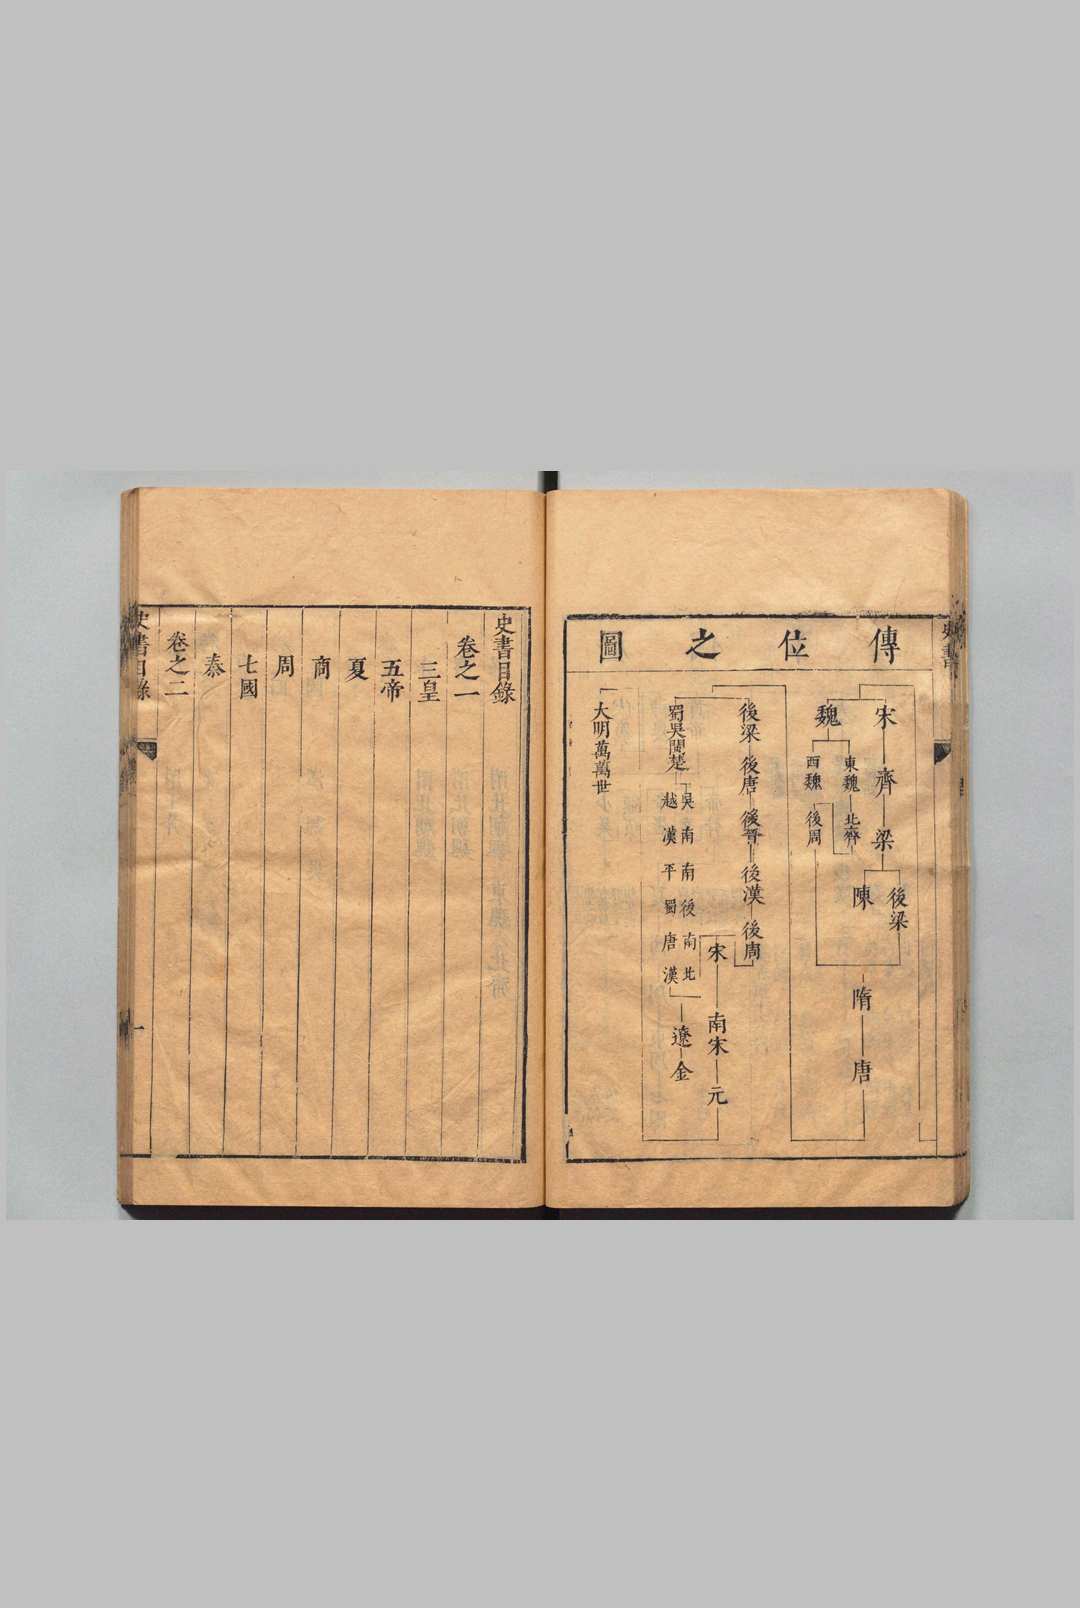 傳位之圖
宋
齊
梁
後梁
陳
魏
東魏
北齊
西魏
後周
隋
唐
後梁
後唐
後晉
後漢
後周
宋
南宋
元
蜀吳閩楚
吳南南後南北
越漢平蜀唐漢
遼
金
大明萬萬世
史書目錄
卷之一
三皇
五帝
夏
商
周
七國
秦
卷之二
史書目錄
一